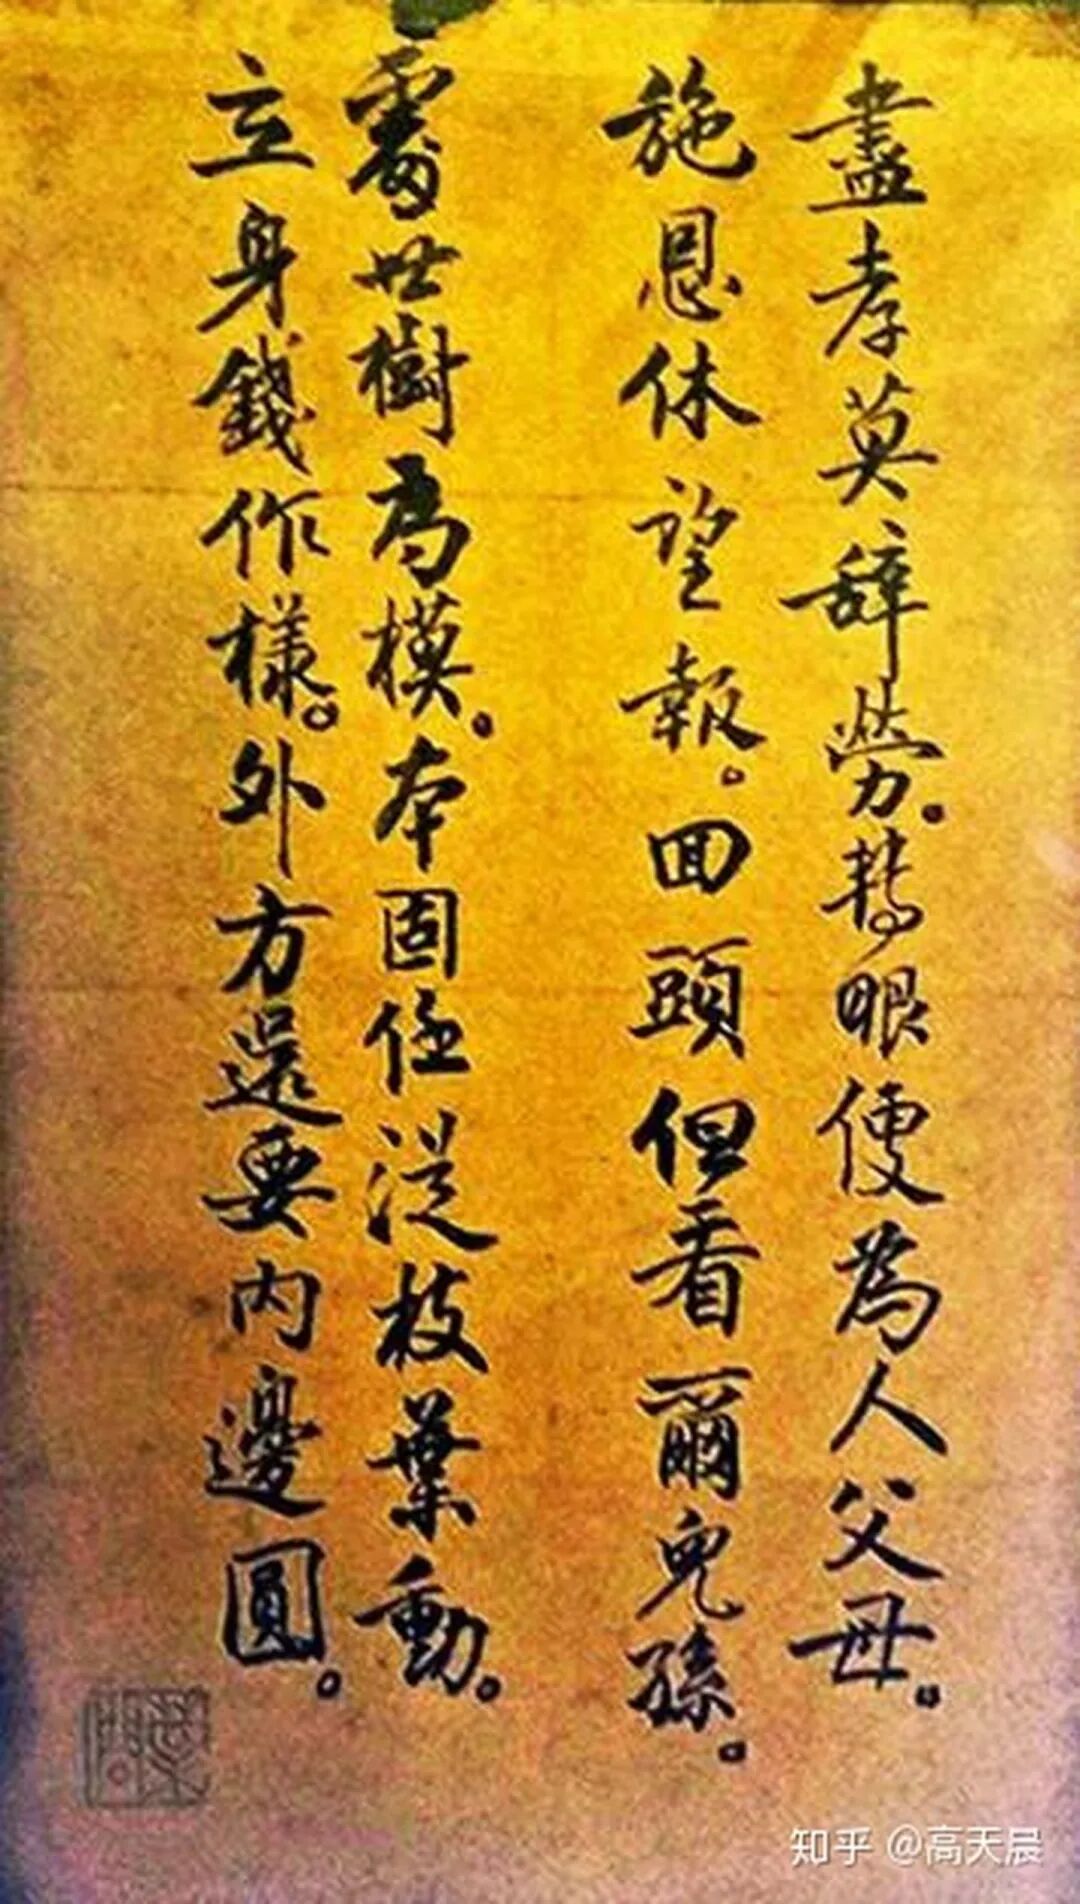 盡孝莫辭勞。轉眼便為人父母。
施恩休望報。回頭但看爾兒孫。
處世樹為模。本固任從枝葉動。
立身錢作樣。外方還要內邊圓。
知乎 @高天晨